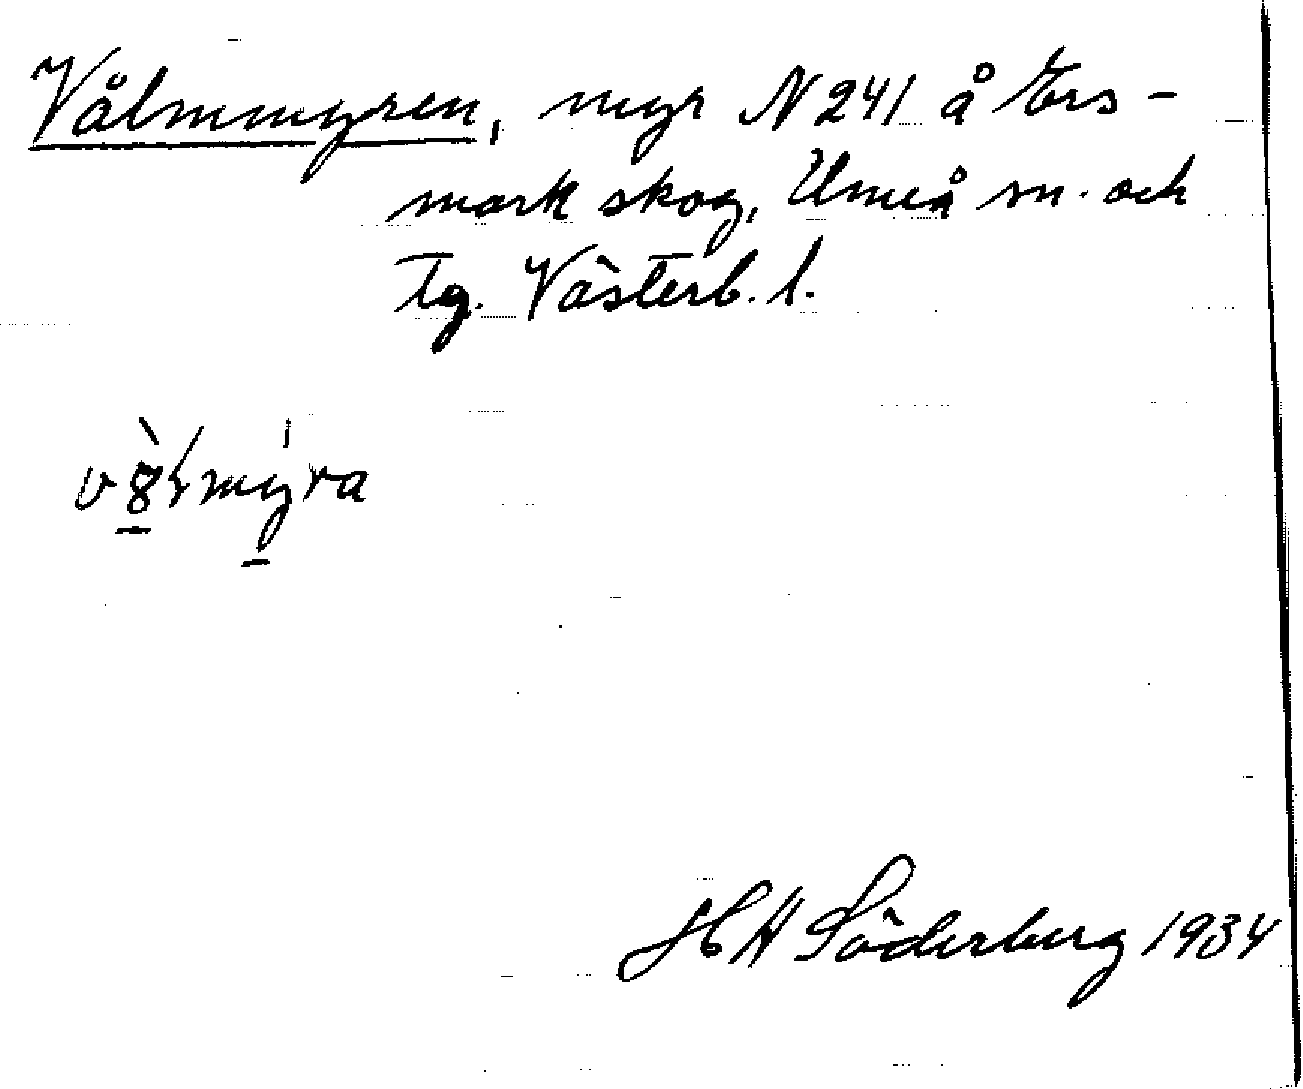 Vålmmyren, myr N 241 å Ers-
mark skog, Umeå sn. och
tg. Västerb. l.
H A Söderberg 1934